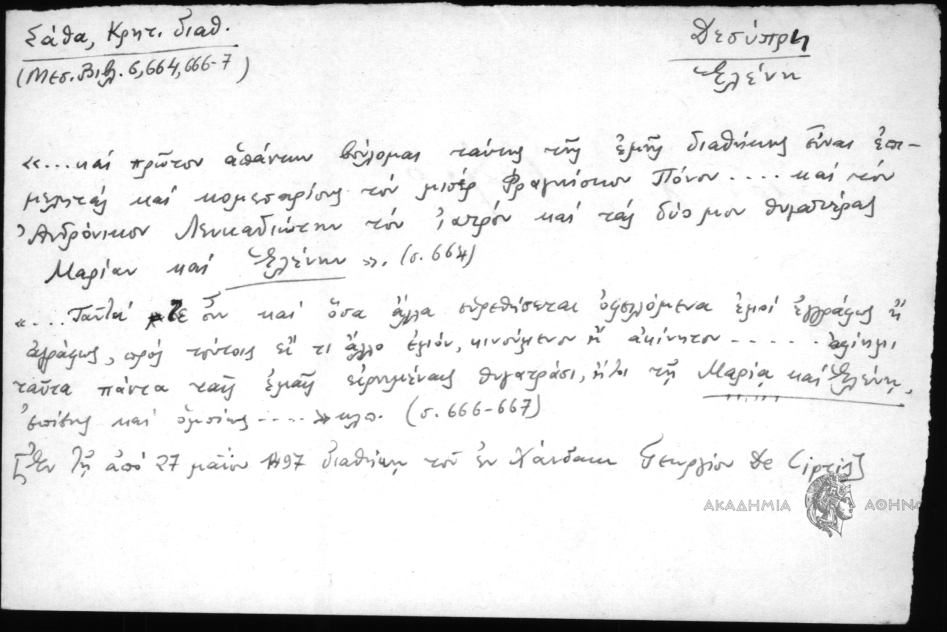 Σάθα, Κρητ. διαθ.
(Μεσ. Βιβλ. 6, 664, 666-7)
Δεσύπρη
Ἑλένη
«... καὶ πρῶτον ἁπάντων βούλομαι ταύτης τῆς ἐμῆς διαθήκης εἶναι ἐπι-
μελητὰς καὶ κομεσαρίους τὸν μισὲρ Φραγκῖσκον Πόνον .... καὶ τὸν
Ἀνδρόνικον Λευκαδιώτην τὸν ἰατρὸν καὶ τὰς δύο μου θυγατέρας
Μαρίαν καὶ Ἑλένην». (σ. 664)
«... Ταῦτά τε οὖν καὶ ὅσα ἄλλα εὑρεθήσεται ὀφειλόμενα ἐμοὶ ἐγγράφως ἢ
ἀγράφως, πρὸς τούτοις εἴ τι ἄλλο ἐμόν, κινούμενον ἢ ἀκίνητον ..... ἀφίημι
ταῦτα πάντα ταῖς ἐμαῖς εἰρημέναις θυγατράσι, ἤτοι τῇ Μαρίᾳ καὶ Ἑλένῃ,
ἐπίσης καὶ ὁμοίως ....» κλπ. (σ. 666-667)
[Ἐν τῇ ἀπὸ 27 μαΐου 1497 διαθήκῃ τοῦ ἐν Χάνδακι Γεωργίου De Cipris]
ΑΚΑΔΗΜΙΑ ΑΘΗΝΩ